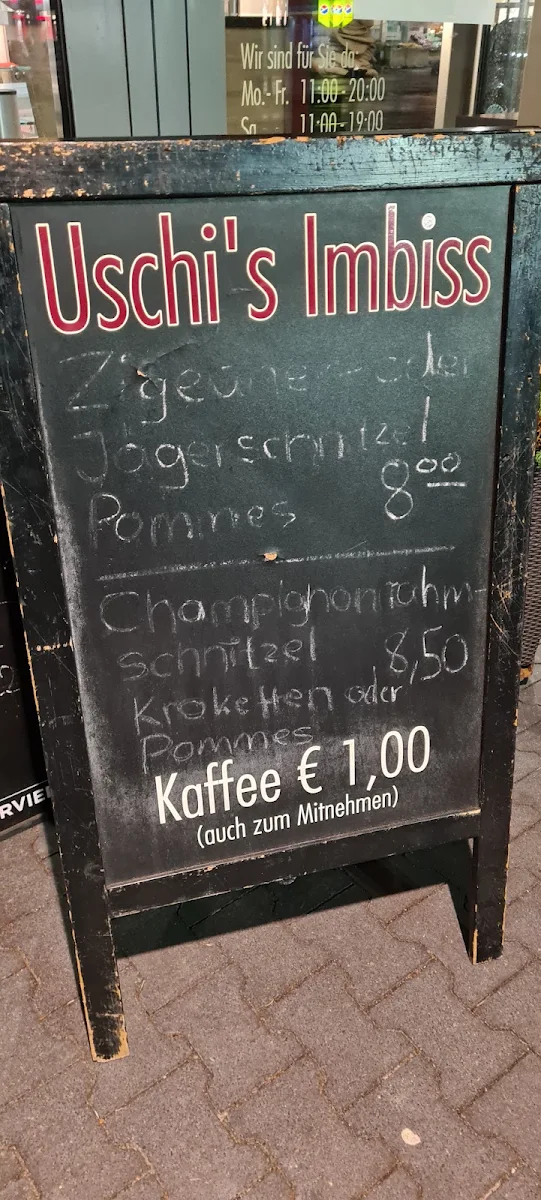 Wir sind für Sie da
Mo.- Fr. 11:00 - 20:00
Sa. 11:00 - 19:00
Uschi's Imbiss
Zigeuner- oder
Jägerschnitzel
Pommes 8⁰⁰
Champignonrahm-
schnitzel 8,50
Kroketten oder
Pommes
Kaffee € 1,00
(auch zum Mitnehmen)